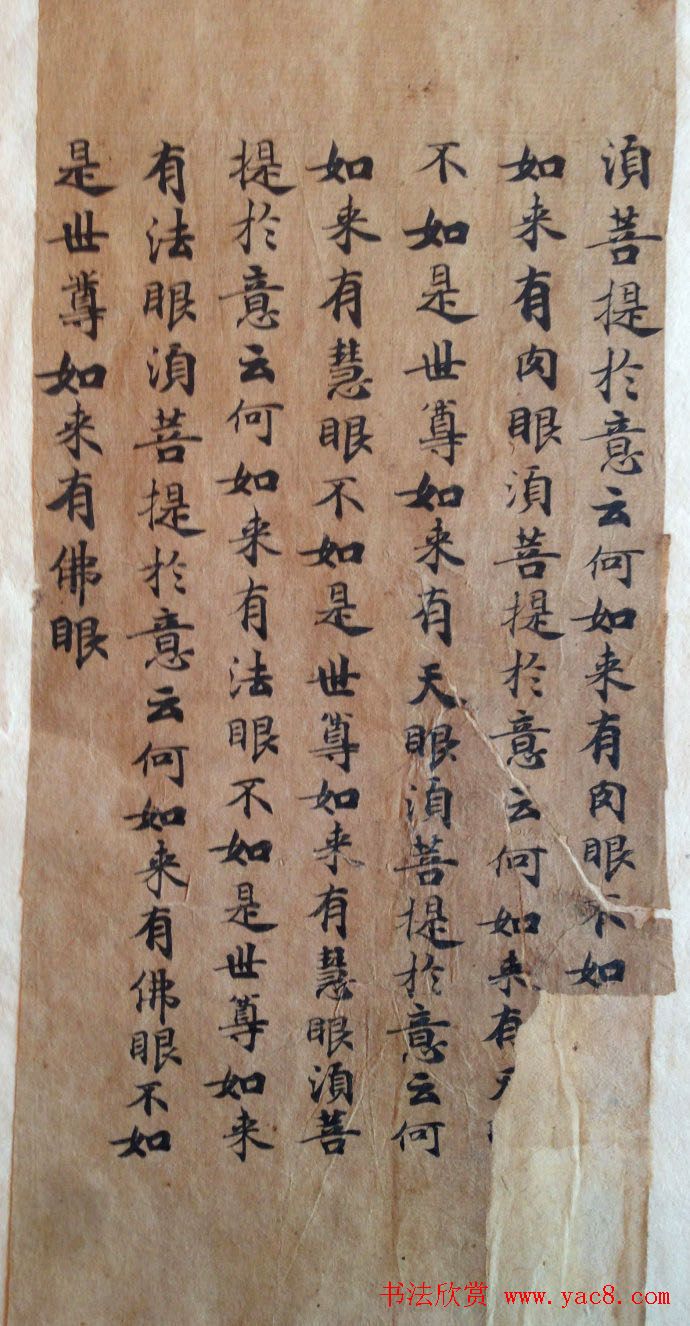 湏菩提於意云何如来有肉眼不如
如来有肉眼湏菩提於意云何如来有天
不如是世尊如来有天眼湏菩提於意云何
如来有慧眼不如是世尊如来有慧眼湏菩
提於意云何如来有法眼不如是世尊如来
有法眼湏菩提於意云何如来有佛眼不如
是世尊如来有佛眼
书法欣赏 www.yac8.com